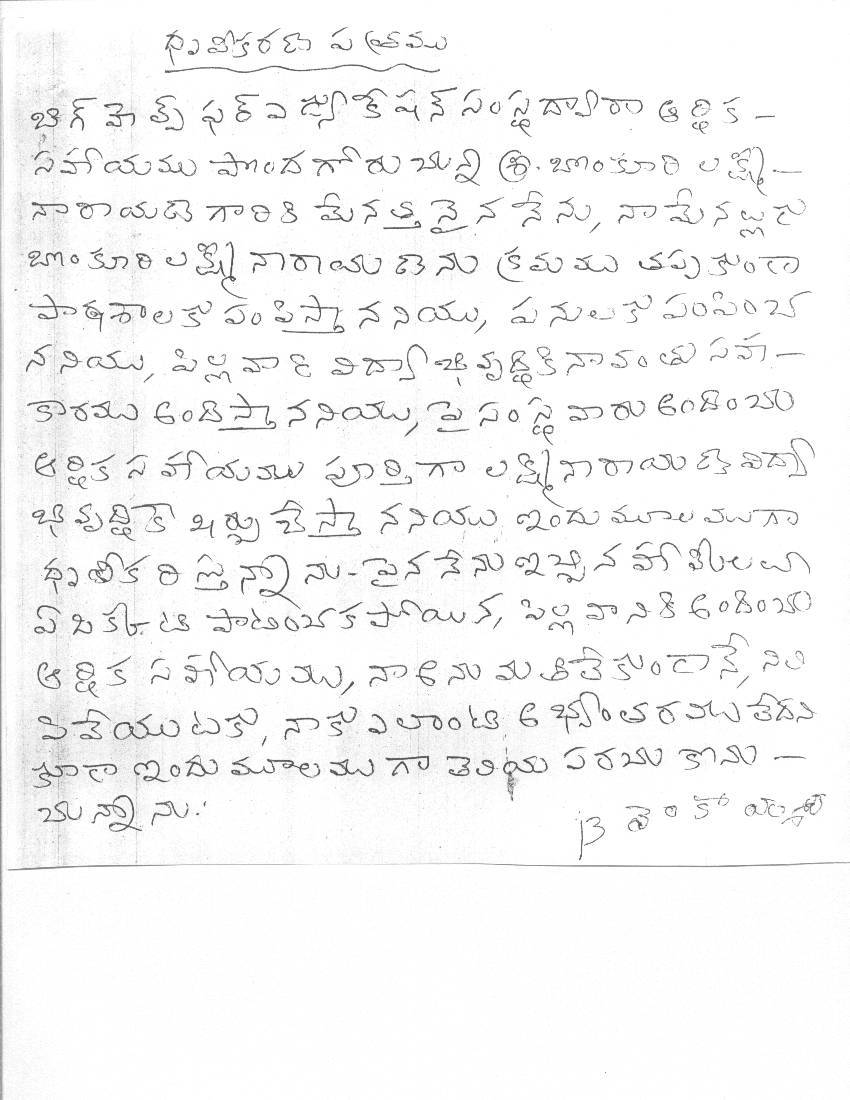 ధృవీకరణ పత్రము
బిగ్ హెల్ప్ ఫర్ ఎడ్యుకేషన్ సంస్థ ద్వారా ఆర్థిక -
సహాయము పొందగోరుచున్న శ్రీ. బొంకూరి లక్ష్మీ -
నారాయణ గారికి మేనత్తనైన నేను, నా మేనల్లుడు
బొంకూరి లక్ష్మీనారాయణను క్రమము తప్పకుండా
పాఠశాలకు పంపిస్తాననియు, పనులకు పంపించ
ననియు, పిల్లవాడి విద్యాభివృద్ధికి నావంతు సహ -
కారము అందిస్తాననియు, పై సంస్థ వారు అందించు
ఆర్థిక సహాయము పూర్తిగా లక్ష్మీనారాయణ విద్యా
భివృద్ధికై ఖర్చు చేస్తాననియు ఇందుమూలముగా
ధృవీకరిస్తున్నాను - పైన నేను ఇచ్చిన హామీలలో
ఏ ఒక్కటి పాటించకపోయిన, పిల్లవానికి అందించు
ఆర్థిక సహాయము, నా అనుమతి లేకుండానే, నిలి
పివేయుటకు, నాకు ఎలాంటి అభ్యంతరము లేదని
కూడా ఇందుమూలముగా తెలియపరచుకొను -
చున్నాను.
B